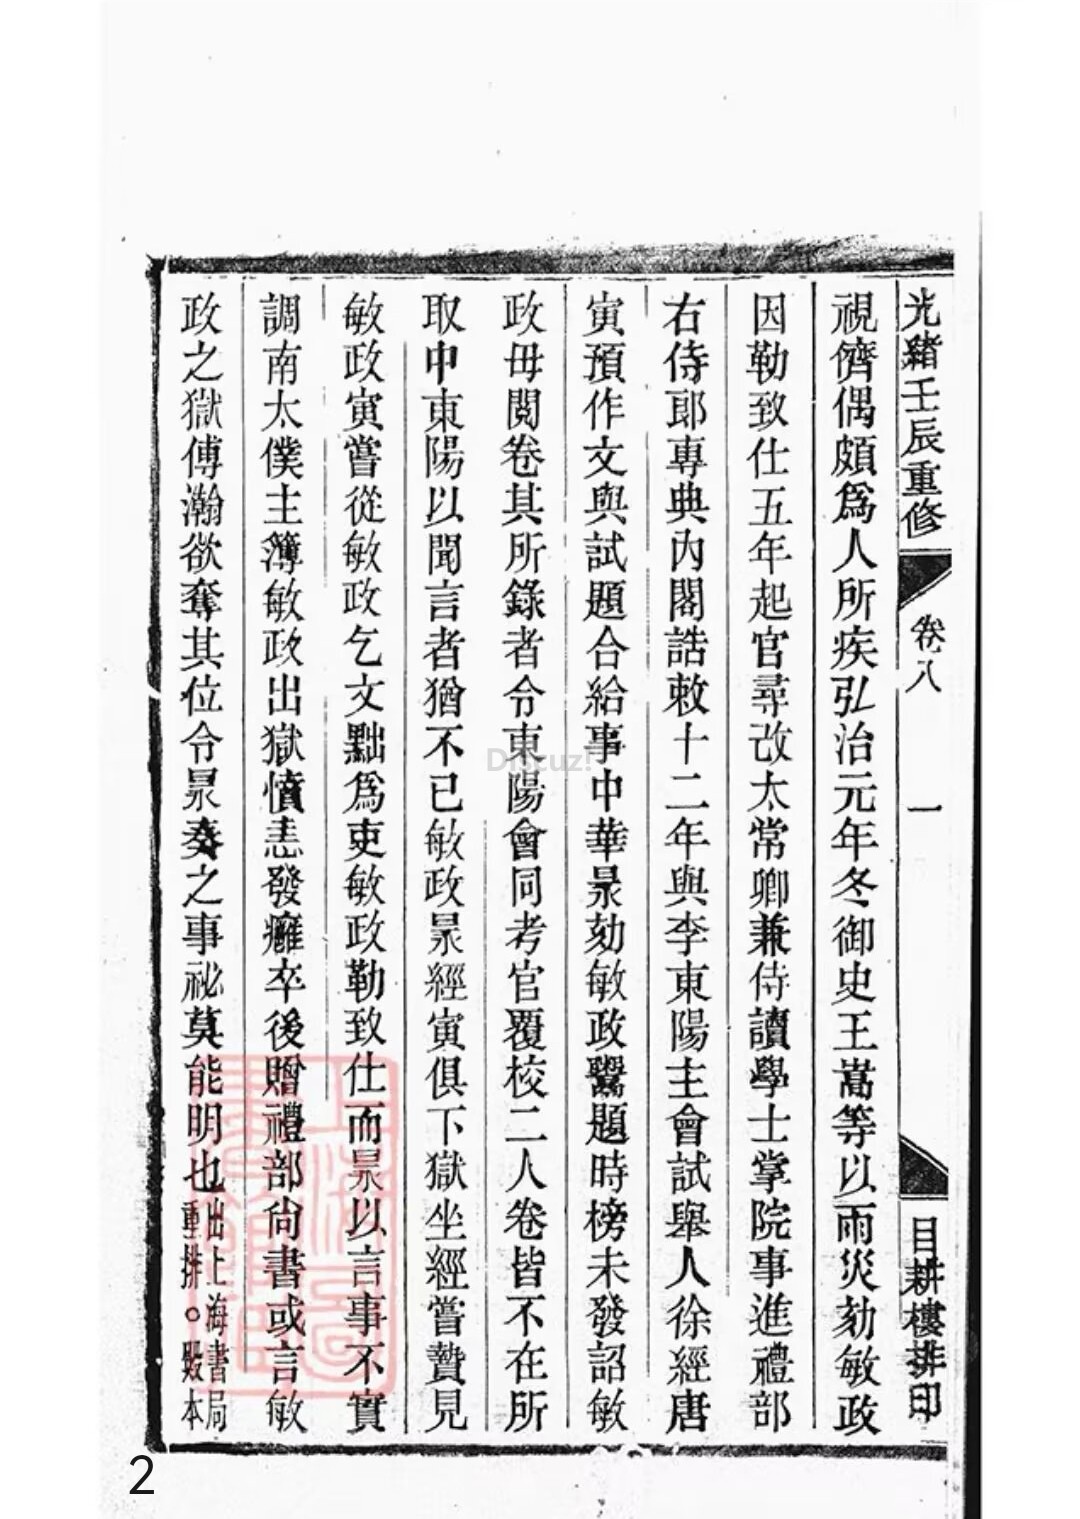 光緒壬辰重修 卷八 一 目耕樓排印
視儕偶頗爲人所疾弘治元年冬御史王嵩等以雨災劾敏政
因勒致仕五年起官尋改太常卿兼侍讀學士掌院事進禮部
右侍郎專典內閣誥敕十二年與李東陽主會試舉人徐經唐
寅預作文與試題合給事中華昶劾敏政鬻題時榜未發詔敏
政毋閱卷其所錄者令東陽會同考官覆校二人卷皆不在所
取中東陽以聞言者猶不已敏政昶經寅俱下獄坐經嘗贄見
敏政寅嘗從敏政乞文黜爲吏敏政勒致仕而昶以言事不實
調南太僕主簿敏政出獄憤恚發癰卒後贈禮部尙書或言敏
政之獄傅瀚欲奪其位令昶奏之事祕莫能明也出上海書局
重排○殿本
Discuz!
2